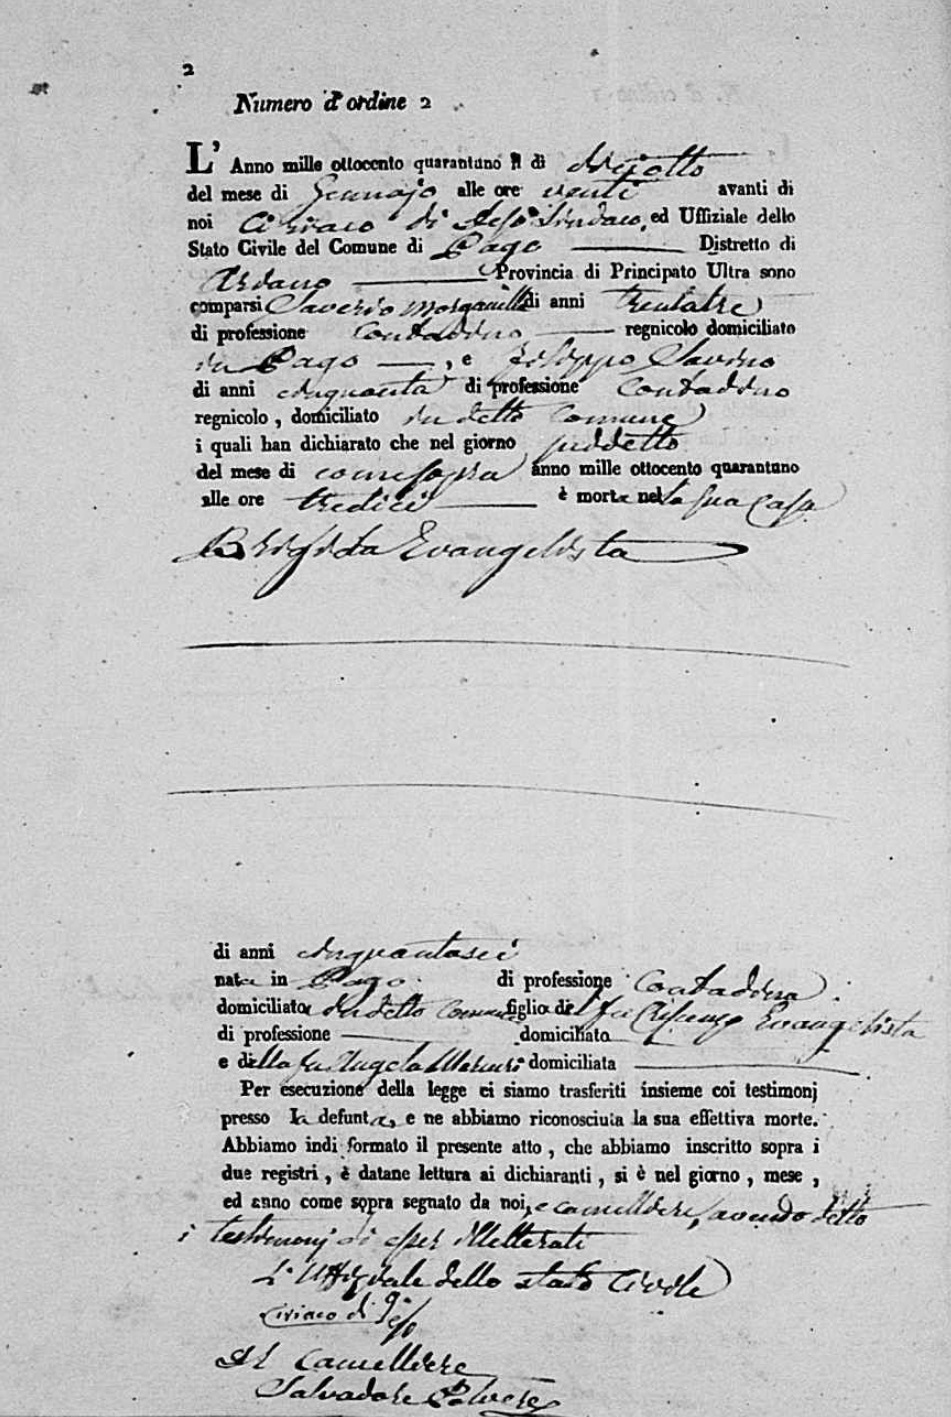 2
Numero d'ordine 2
L' Anno mille ottocento quarantuno il dì diciotto
del mese di Gennajo alle ore venti avanti di
noi Ciriaco di Jeso Sindaco, ed Uffiziale dello
Stato Civile del Comune di Pago Distretto di
Ariano Provincia di Principato Ultra sono
comparsi Saverio Morganella di anni trentatre
di professione Contadino regnicolo domiciliato
in Pago, e Filippo Savino
di anni cinquanta di professione Contadino
regnicolo, domiciliato in detto Comune
i quali han dichiarato che nel giorno suddetto
del mese di come sopra anno mille ottocento quarantuno
alle ore tredici è morta nella sua casa
Brigida Evangelista
di anni cinquantasei
nata in Pago di professione Contadina
domiciliata in detto Comune figlia del fu Evangelista
di professione domiciliato
e della fu Angela Mercuri domiciliata
Per esecuzione della legge ci siamo trasferiti insieme coi testimonj
presso la defunta, e ne abbiamo riconosciuta la sua effettiva morte.
Abbiamo indi formato il presente atto, che abbiamo inscritto sopra i
due registri, è datane lettura ai dichiaranti, si è nel giorno, mese,
ed anno come sopra segnato da noi, e cancelliere, avendo detto
i testimonj di esser illetterati
L'Uffiziale dello stato Civile
Ciriaco di Jeso
Il Cancelliere
Salvadore Polvere